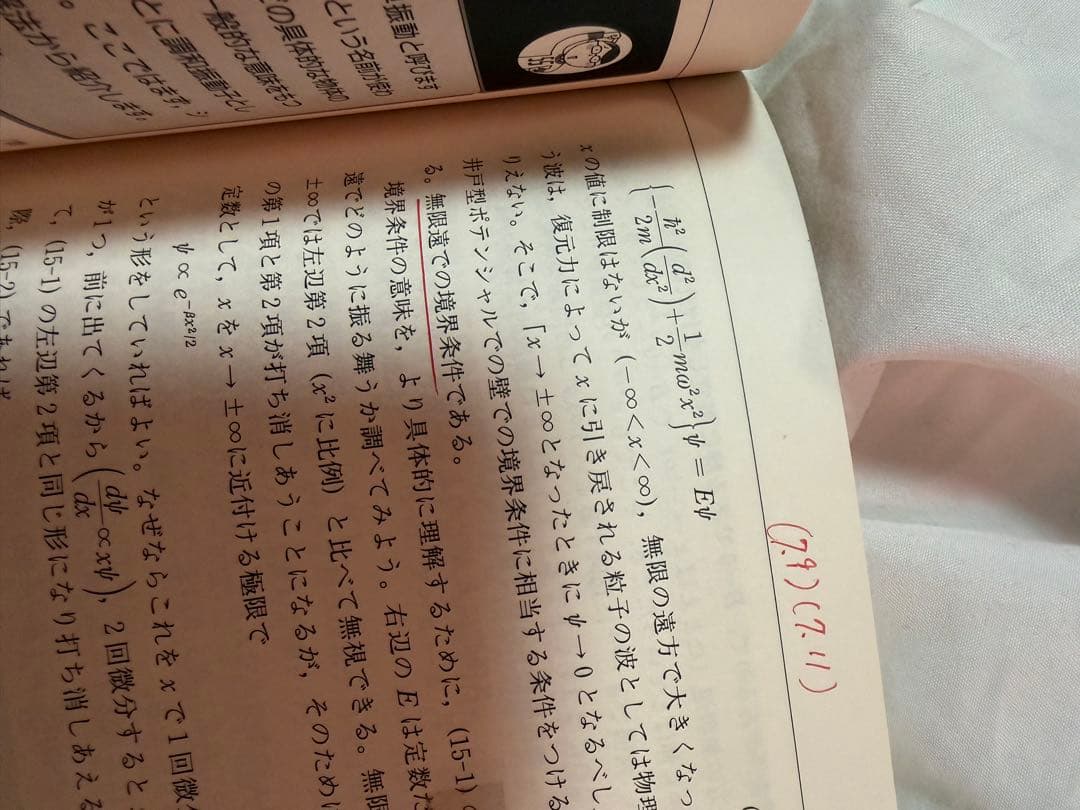 振動と呼びます
という名前が使わ
の具体的な物体の
一般的な意味をもつ
とに調和振動子とし
。ここではまず，シ
解法から紹介します。
(7.9) (7.11)
{−ħ²/2m (d²/dx²) + 1/2 mω²x²}ψ = Eψ
xの値に制限はないが（−∞<x<∞），無限の遠方で大きくなっ
う波は，復元力によってxに引き戻される粒子の波としては物理
りえない。そこで，「x→±∞となったときにψ→0となるべし
井戸型ポテンシャルでの壁での境界条件に相当する条件をつける
る。無限遠での境界条件である。
境界条件の意味を，より具体的に理解するために，(15-1)
遠でどのように振る舞うか調べてみよう。右辺のEは定数だ
±∞では左辺第2項（x²に比例）と比べて無視できる。無限
の第1項と第2項が打ち消しあうことになるが，そのために
定数として，xをx→±∞に近付ける極限で
ψ∝e^{−βx²/2}
という形をしていればよい。なぜならこれをxで1回微分
が1つ，前に出てくるから (dψ/dx ∝ xψ)，2回微分すると
て，(15-1)の左辺第2項と同じ形になり打ち消しあえる
際，(15-2)であれば